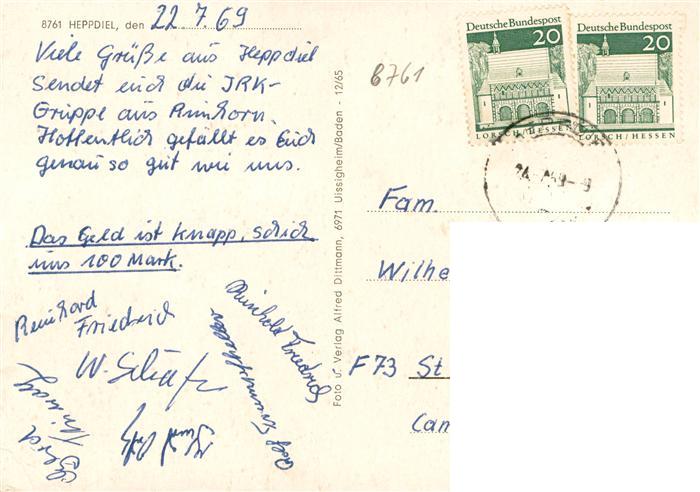 8761 HEPPDIEL, den 22.7.69
Viele Grüße aus Heppdiel
sendet euch die JRK-
Gruppe aus
Hoffentlich gefällt es Euch
genau so gut wie uns.
Das Geld ist knapp, schick
uns 100 Mark.
Reinhard
Friedrich
Reinhold Friedrich
W. Schäfer
Foto u. Verlag Alfred Dittmann, 6971 Uissigheim/Baden - 12/65
8761
Deutsche Bundespost
20
LORSCH/HESSEN
Deutsche Bundespost
20
LORSCH/HESSEN
Fam.
Wilhe
F73 St
Cam